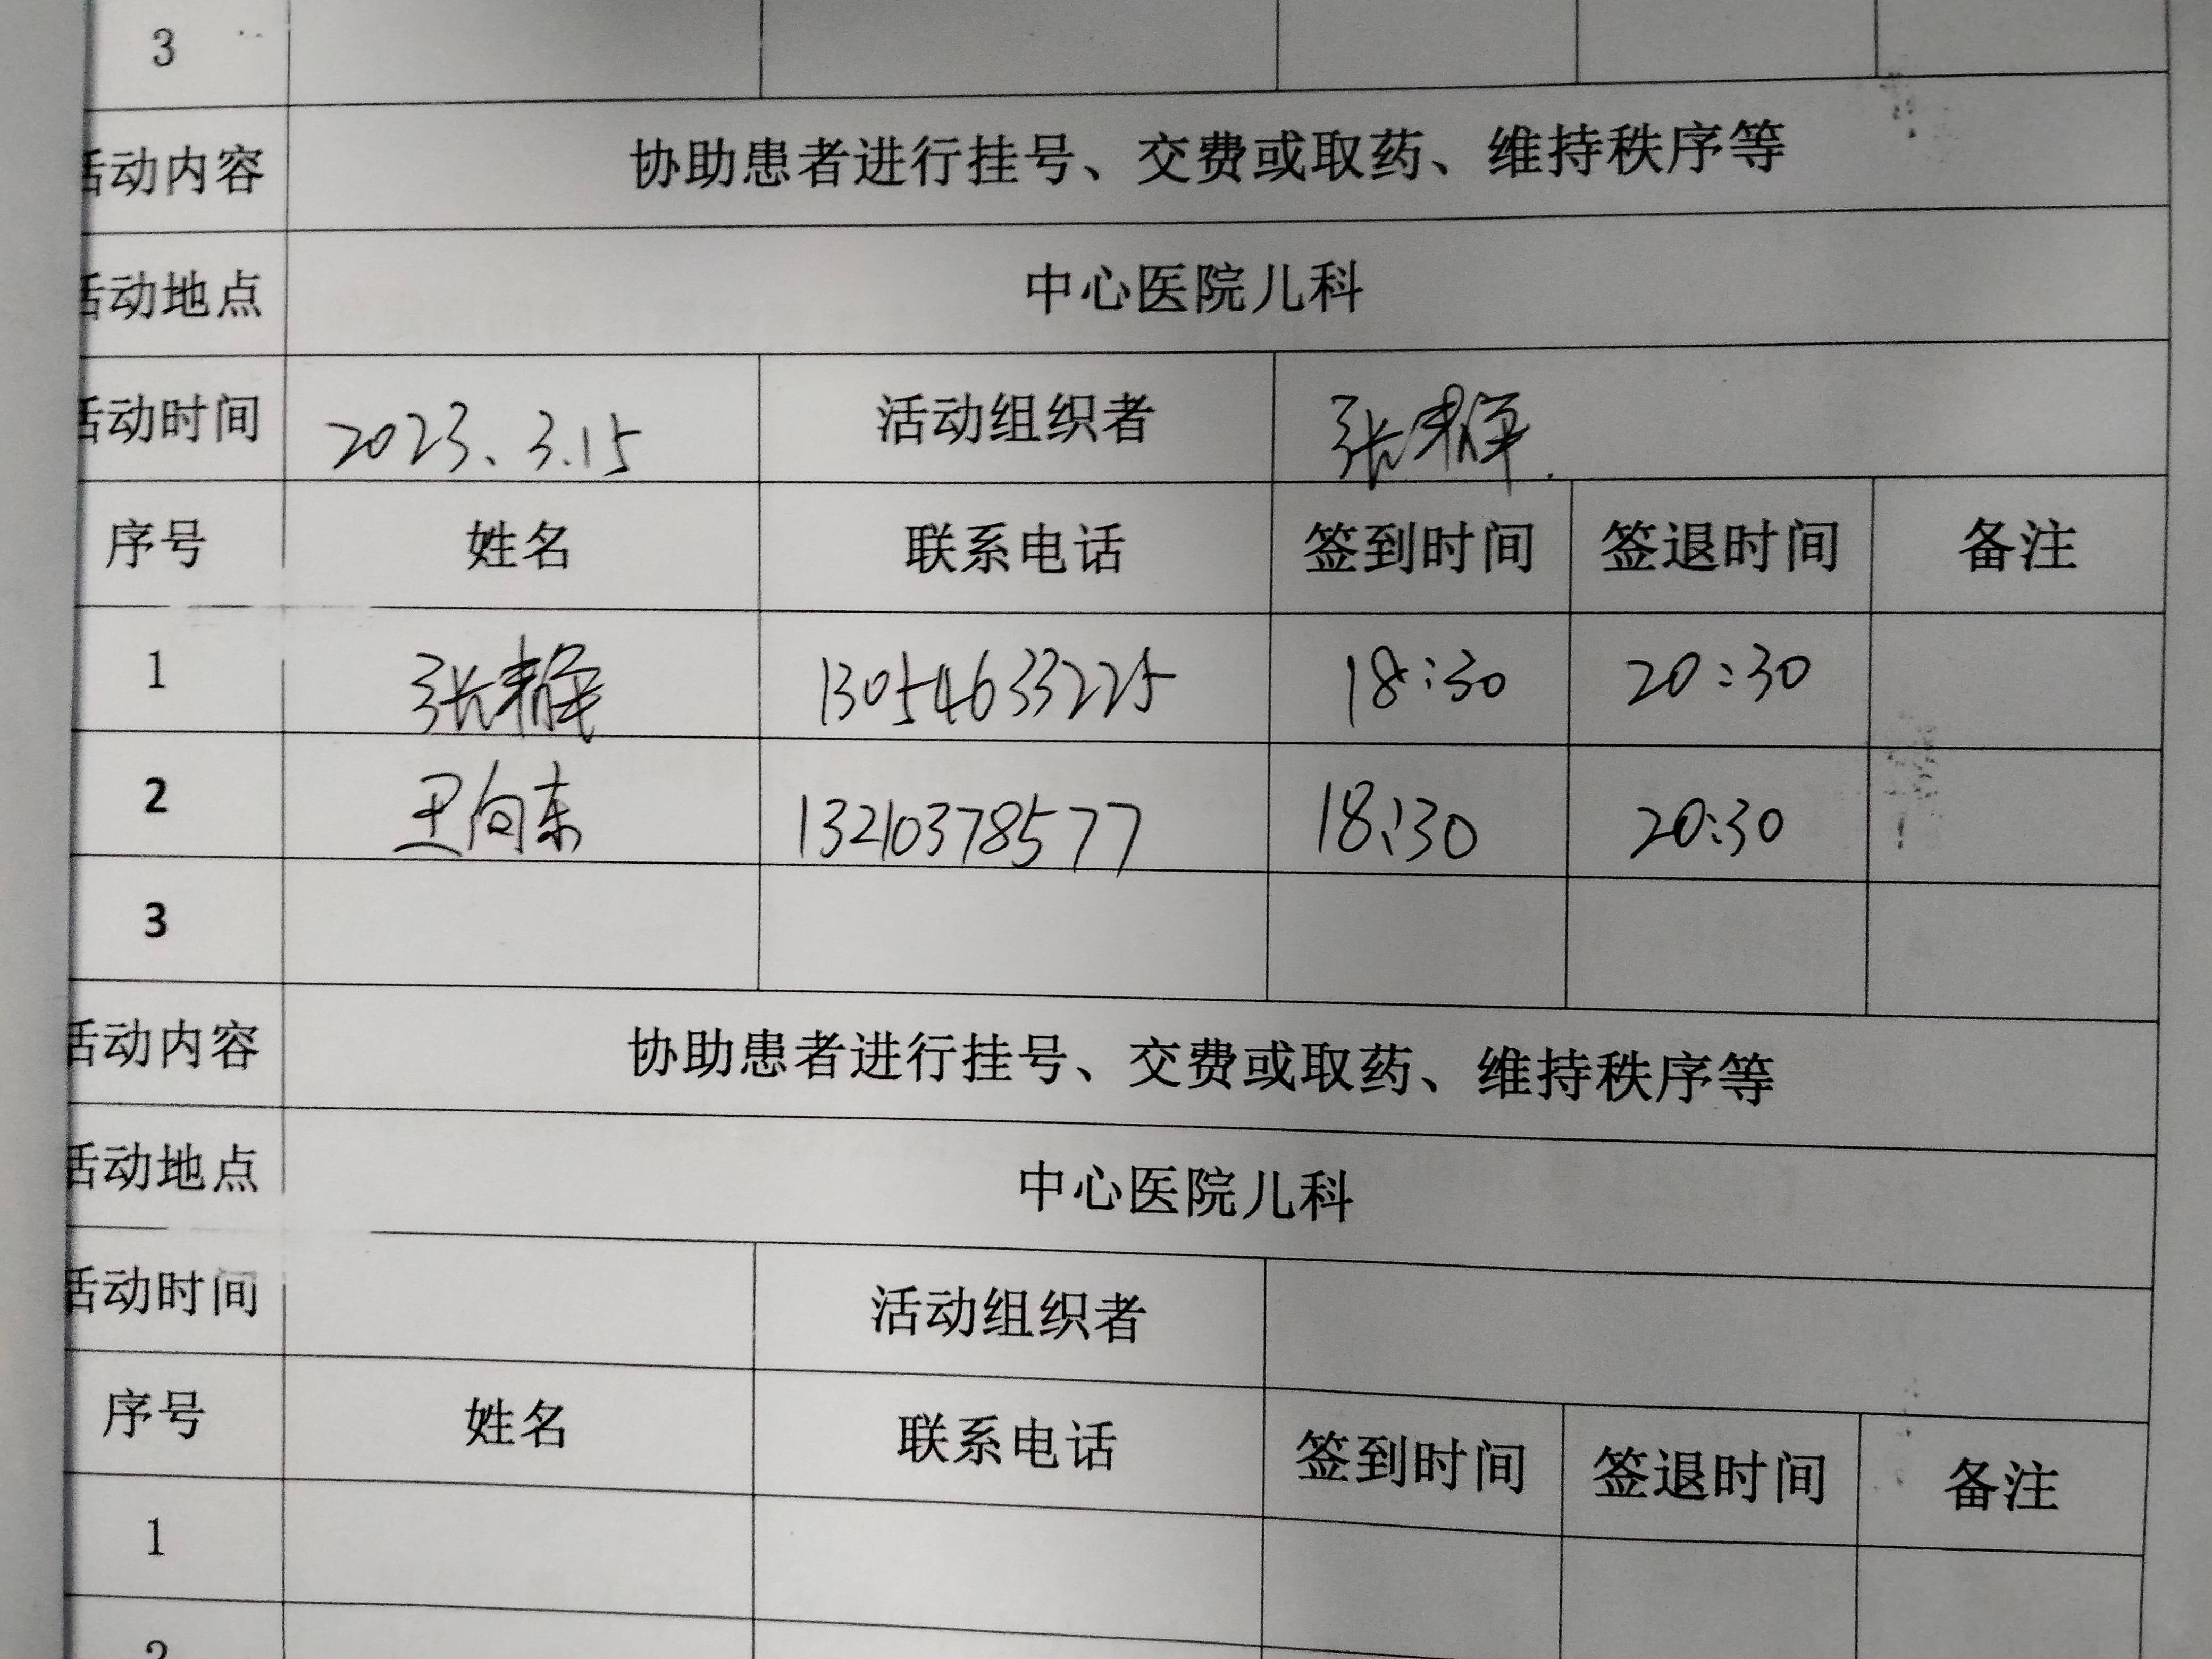 3
活动内容 协助患者进行挂号、交费或取药、维持秩序等
活动地点 中心医院儿科
活动时间 2023、3.15 活动组织者 张静
序号 姓名 联系电话 签到时间 签退时间 备注
1 张静 13054633225 18:30 20:30
2 王向东 13210378577 18:30 20:30
3
活动内容 协助患者进行挂号、交费或取药、维持秩序等
活动地点 中心医院儿科
活动时间 活动组织者
序号 姓名 联系电话 签到时间 签退时间 备注
1
2